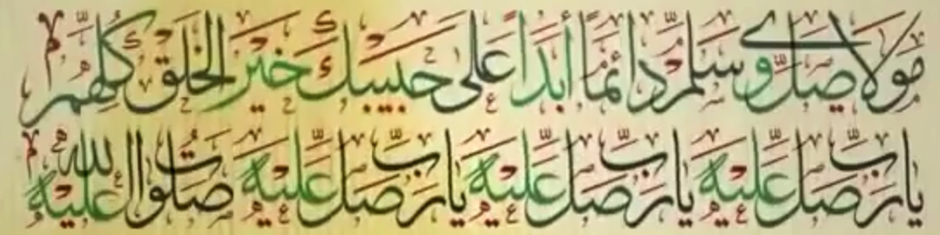 مولاي صل وسلم دائما أبدا على حبيبك خير الخلق كلهم
يا رب صل عليه يا رب صل عليه يا رب صل عليه صلوات الله عليه